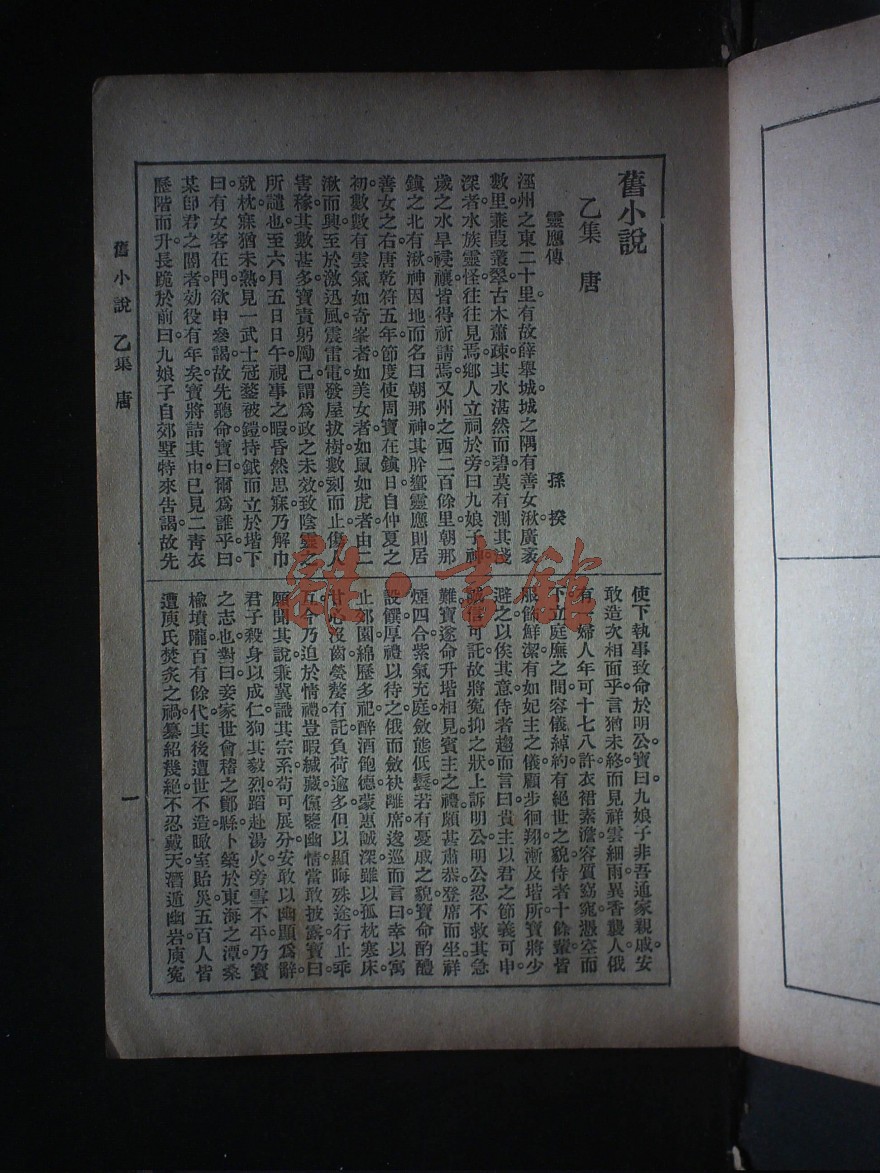 舊小說
乙集　唐
靈應傳
孫揆
涇州之東二十里有故薛舉城城之隅有善女湫廣袤
數里蒹葭叢翠古木蕭疎其水湛然而碧莫有測其淺
深者水族靈怪往往見焉鄉人立祠於旁曰九娘子神
歲之水旱祲禳皆得祈請焉又州之西二百餘里朝那
鎮之北有湫神因地而名曰朝那神其肸蠁靈應則居
善女之右唐乾符五年節度使周寶在鎮日自仲夏之
初數數有雲氣如奇峯者如美女者如鼠如虎者由二
湫而興至於激迅風震雷電發屋拔樹數刻而止傷人
害稼其數甚多寶責躬勵己謂爲政之未效致陰靈之
所譴也至六月五日日午視事之暇昏然思寐乃解巾
就枕寐猶未熟見一武士冠鍪被鎧持鉞而立於堦下
曰有女客在門欲申參謁故先聽命寶曰爾爲誰乎曰
某卽君之閽者効役有年矣寶將詰其由已見二靑衣
歷階而升長跪於前曰九娘子自郊墅特來告謁故先
使下執事致命於明公寶曰九娘子非吾通家親戚安
敢造次相面乎言猶未終而見祥雲細雨異香襲人俄
有一婦人年可十七八許衣裙素澹容質窈窕憑空而
下立庭廡之間容儀綽約有絕世之貌侍者十餘輩皆
服飾鮮潔有如妃主之儀顧步徊翔漸及堦所寶將少
避之以俟其意侍者趨而言曰貴主以君之節義可申
誠信可託故將寃抑之狀上訴明公明公忍不救其急
難寶遂命升堦相見賓主之禮頗甚肅恭登席而坐祥
煙四合紫氣充庭斂態低鬟若有憂戚之貌寶命酌醴
設饌厚禮以待之俄而斂袂離席逡巡而言曰幸以寓
止郊園綿歷多祀醉酒飽德蒙惠誠深雖以孤枕寒床
甘心沒齒煢嫠有託負荷逾多但以顯晦殊途行止乖
互今乃迫於情禮豈暇緘藏儻鑒幽情當敢披露寶曰
願聞其說兼冀識其宗系苟可展分安敢以幽顯爲辭
君子殺身以成仁狥其毅烈蹈赴湯火旁雪不平乃寶
之志也對曰妾家世會稽之鄮縣卜築於東海之潭桑
楡墳隴百有餘代其後遭世不造瞰室貽災五百人皆
遭庾氏焚炙之禍纂紹幾絕不忍戴天潛遁幽岩庾寃
舊小說　乙集　唐
一
雜·書館